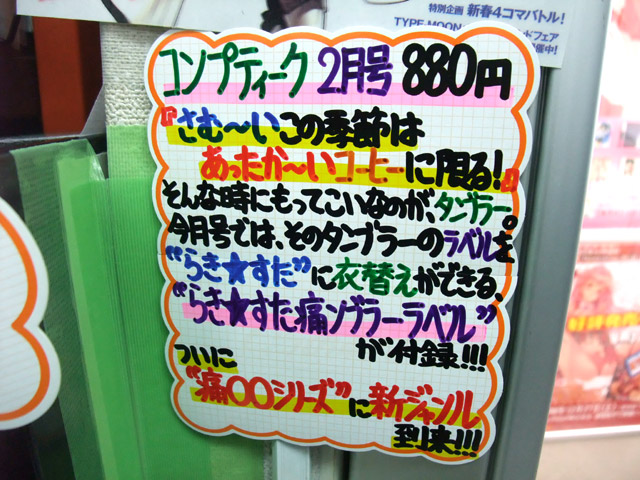 特別企画 新春4コマバトル!
TYPE-MOON
ドフェア
開催中!
コンプティーク 2月号 880円
『さむ〜いこの季節は
あったか〜いコーヒーに限る!』
そんな時にもってこいなのが、タンブラー。
今月号では、そのタンブラーのラベルを
"らき★すた"に衣替えができる、
"らき★すた痛ンブラーラベル"
が付録!!!
ついに
"痛〇〇シリーズ"に新ジャンル
到来!!!